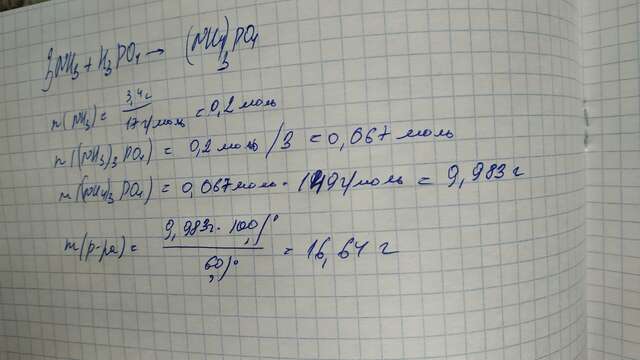 3NH₃ + H₃PO₄ → (NH₄)₃PO₄
n(NH₃) = 3,4 г / 17 г/моль = 0,2 моль
n((NH₃)₃PO₄) = 0,2 моль / 3 = 0,067 моль
m((NH₄)₃PO₄) = 0,067 моль · 149 г/моль = 9,983 г
m(р-ра) = 9,983 г · 100% / 60% = 16,64 г